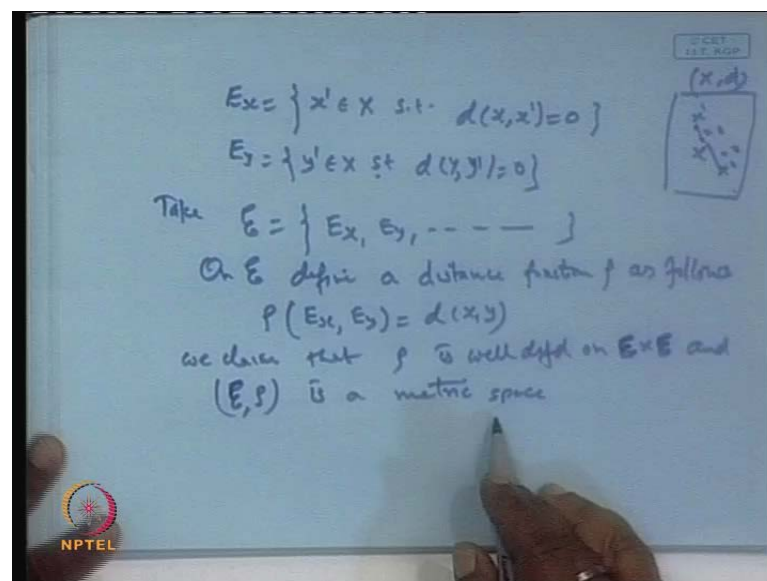 © CET
I.I.T. KGP
(X, d)
Ex = { x' ∈ X s.t. d(x, x') = 0 }
Ey = { y' ∈ X st d(y, y') = 0 }
Take E = { Ex, Ey, - - - - — }
On E define a distance function ρ as follows
ρ (Ex, Ey) = d(x, y)
we claim that ρ is well defd on E × E and
(E, ρ) is a metric space
NPTEL